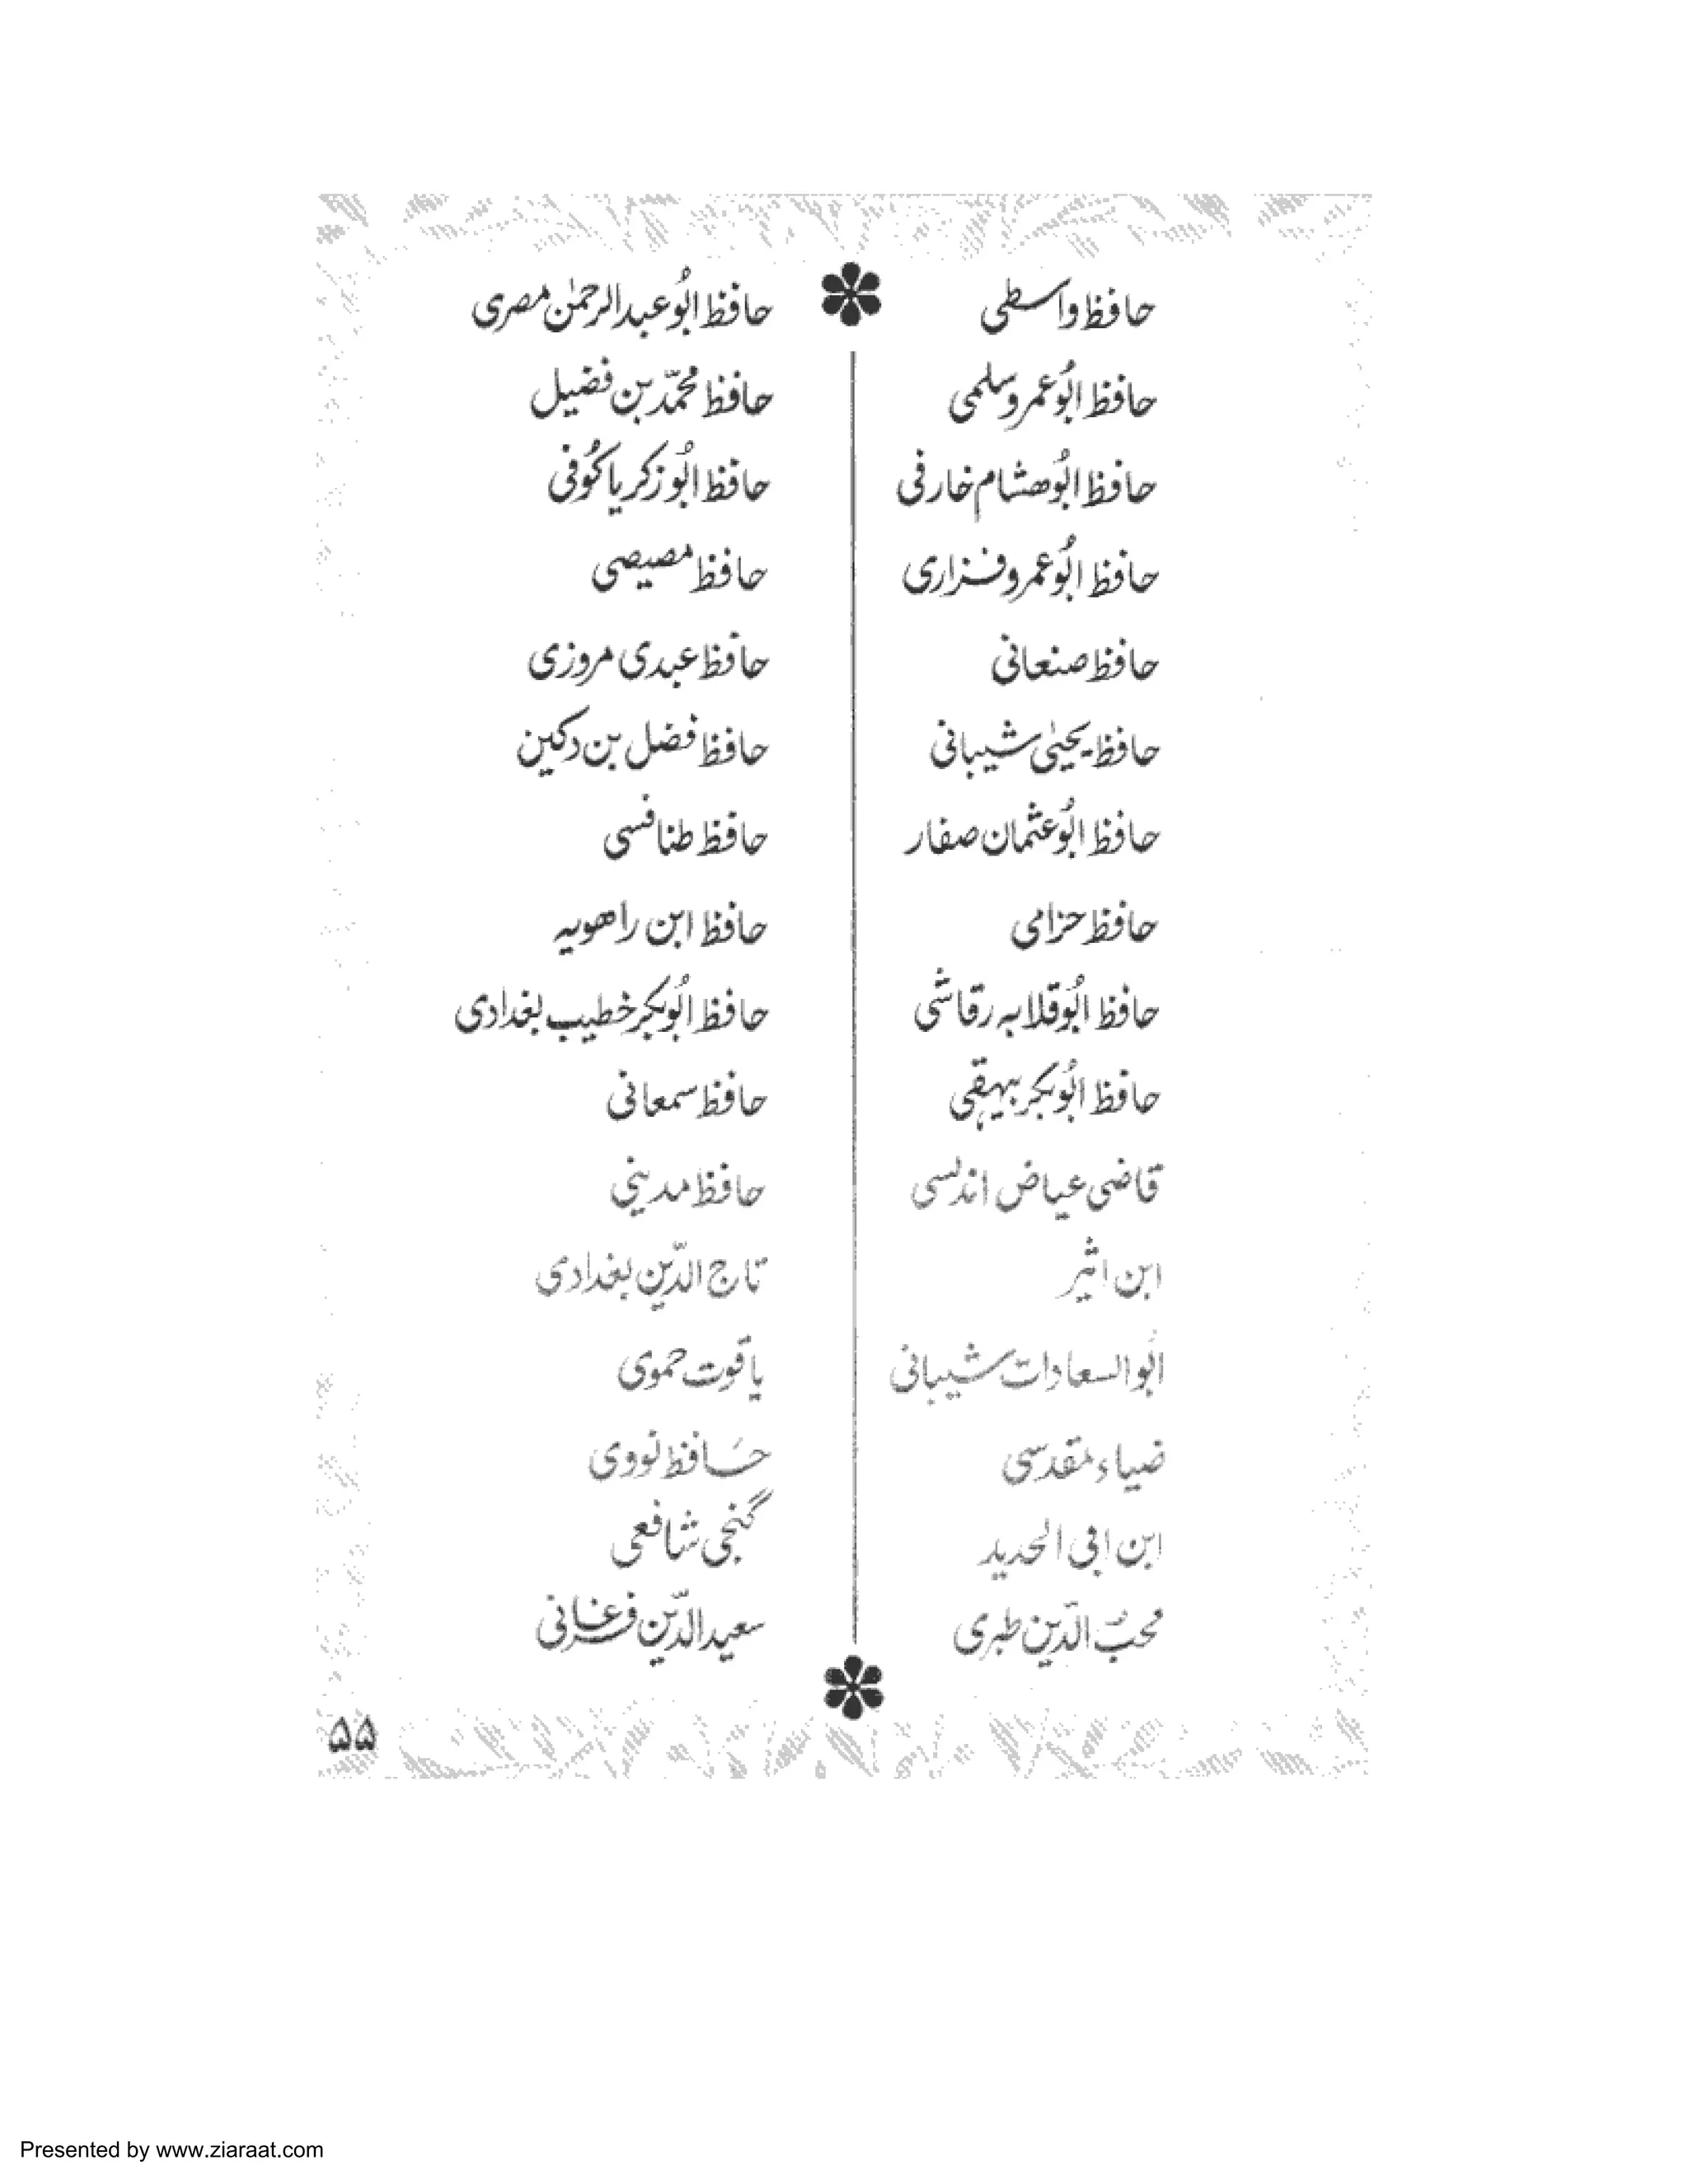 حافظ واسطی
حافظ ابُوعمرو سلمی
حافظ ابُوھشام خارفی
حافظ ابُوعمرو فزاری
حافظ صنعانی
حافظ یحییٰ شیبانی
حافظ ابُوعثمان صفار
حافظ حزامی
حافظ ابُوقلابہ رقاشی
حافظ ابُوبکر بیہقی
قاضی عیاض اندلسی
ابن اثیر
ابُوالسعادات شیبانی
ضیاء مقدسی
ابن ابی الحدید
محبُّ الدّین طبری
حافظ ابُوعبدالرحمٰن مصری
حافظ محمّد بن فضیل
حافظ ابُوزکریا کُوفی
حافظ مصیصی
حافظ عبدی مروزی
حافظ فضل بن دکین
حافظ طنافسی
حافظ ابن راھویہ
حافظ ابُوبکر خطیب بغدادی
حافظ سمعانی
حافظ مدینی
تاج الدّین بغدادی
یاقوت حموی
حافظ نووی
گنجی شافعی
سعید الدّین فرغانی
۵۵
Presented by www.ziaraat.com